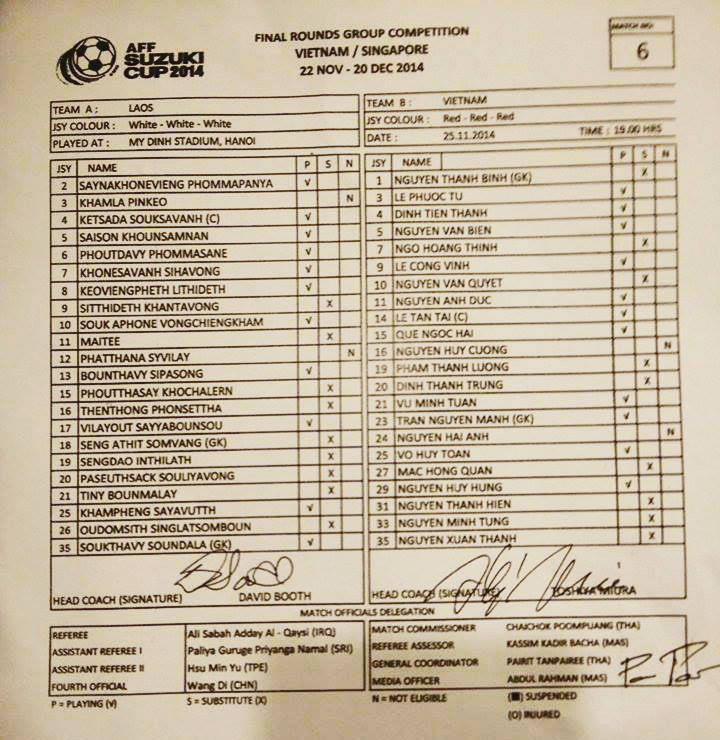 AFF
SUZUKI
CUP 2014
FINAL ROUNDS GROUP COMPETITION
VIETNAM / SINGAPORE
22 NOV - 20 DEC 2014
MATCH NO:
6
TEAM A : LAOS
JSY COLOUR : White - White - White
PLAYED AT : MY DINH STADIUM, HANOI
TEAM B : VIETNAM
JSY COLOUR : Red - Red - Red
DATE : 25.11.2014 TIME : 19.00 HRS
JSY NAME P S N
2 SAYNAKHONEVIENG PHOMMAPANYA √
3 KHAMLA PINKEO N
4 KETSADA SOUKSAVANH (C) √
5 SAISON KHOUNSAMNAN √
6 PHOUTDAVY PHOMMASANE √
7 KHONESAVANH SIHAVONG √
8 KEOVIENGPHETH LITHIDETH √
9 SITTHIDETH KHANTAVONG X
10 SOUK APHONE VONGCHIENGKHAM √
11 MAITEE X
12 PHATTHANA SYVILAY N
13 BOUNTHAVY SIPASONG √
15 PHOUTTHASAY KHOCHALERN X
16 THENTHONG PHONSETTHA X
17 VILAYOUT SAYYABOUNSOU √
18 SENG ATHIT SOMVANG (GK) X
19 SENGDAO INTHILATH X
20 PASEUTHSACK SOULIYAVONG X
21 TINY BOUNMALAY X
25 KHAMPHENG SAYAVUTTH √
26 OUDOMSITH SINGLATSOMBOUN X
35 SOUKTHAVY SOUNDALA (GK) √
JSY NAME P S N
1 NGUYEN THANH BINH (GK) X
3 LE PHUOC TU √
4 DINH TIEN THANH √
5 NGUYEN VAN BIEN √
7 NGO HOANG THINH X
9 LE CONG VINH √
10 NGUYEN VAN QUYET X
11 NGUYEN ANH DUC √
14 LE TAN TAI (C) √
15 QUE NGOC HAI √
16 NGUYEN HUY CUONG N
19 PHAM THANH LUONG X
20 DINH THANH TRUNG X
21 VU MINH TUAN √
23 TRAN NGUYEN MANH (GK) √
24 NGUYEN HAI ANH N
25 VO HUY TOAN √
27 MAC HONG QUAN X
29 NGUYEN HUY HUNG √
31 NGUYEN THANH HIEN X
33 NGUYEN MINH TUNG X
35 NGUYEN XUAN THANH X
HEAD COACH (SIGNATURE) DAVID BOOTH
HEAD COACH (SIGNATURE) TOSHIYA MIURA
MATCH OFFICIALS DELEGATION
REFEREE Ali Sabah Adday Al - Qaysi (IRQ)
ASSISTANT REFEREE I Paliya Guruge Priyanga Namal (SRI)
ASSISTANT REFEREE II Hsu Min Yu (TPE)
FOURTH OFFICIAL Wang Di (CHN)
MATCH COMMISSIONER CHAICHOK POOMPUANG (THA)
REFEREE ASSESSOR KASSIM KADIR BACHA (MAS)
GENERAL COORDINATOR PAIRIT TANPAIREE (THA)
MEDIA OFFICER ABDUL RAHMAN (MAS)
P = PLAYING (V) S = SUBSTITUTE (X) N = NOT ELIGIBLE (■) SUSPENDED
(O) INJURED